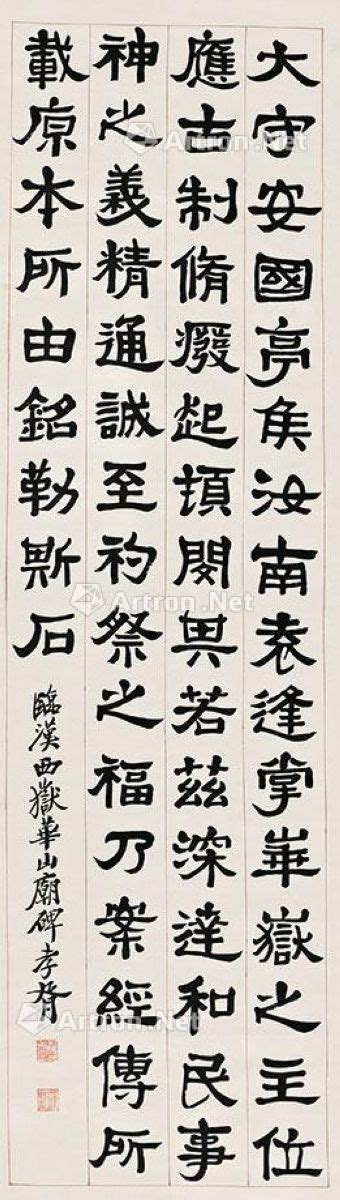 大守安國亭矦汝南袁逢掌崋嶽之主位
應古制脩癈起頓閔其若茲深達和民事
神之義精通誠至礿祭之福乃案經傳所
載原本所由銘勒斯石
臨漢西嶽華山廟碑孝胥
Artron.Net
Artron.Net
Artron.Net
Artron.Net